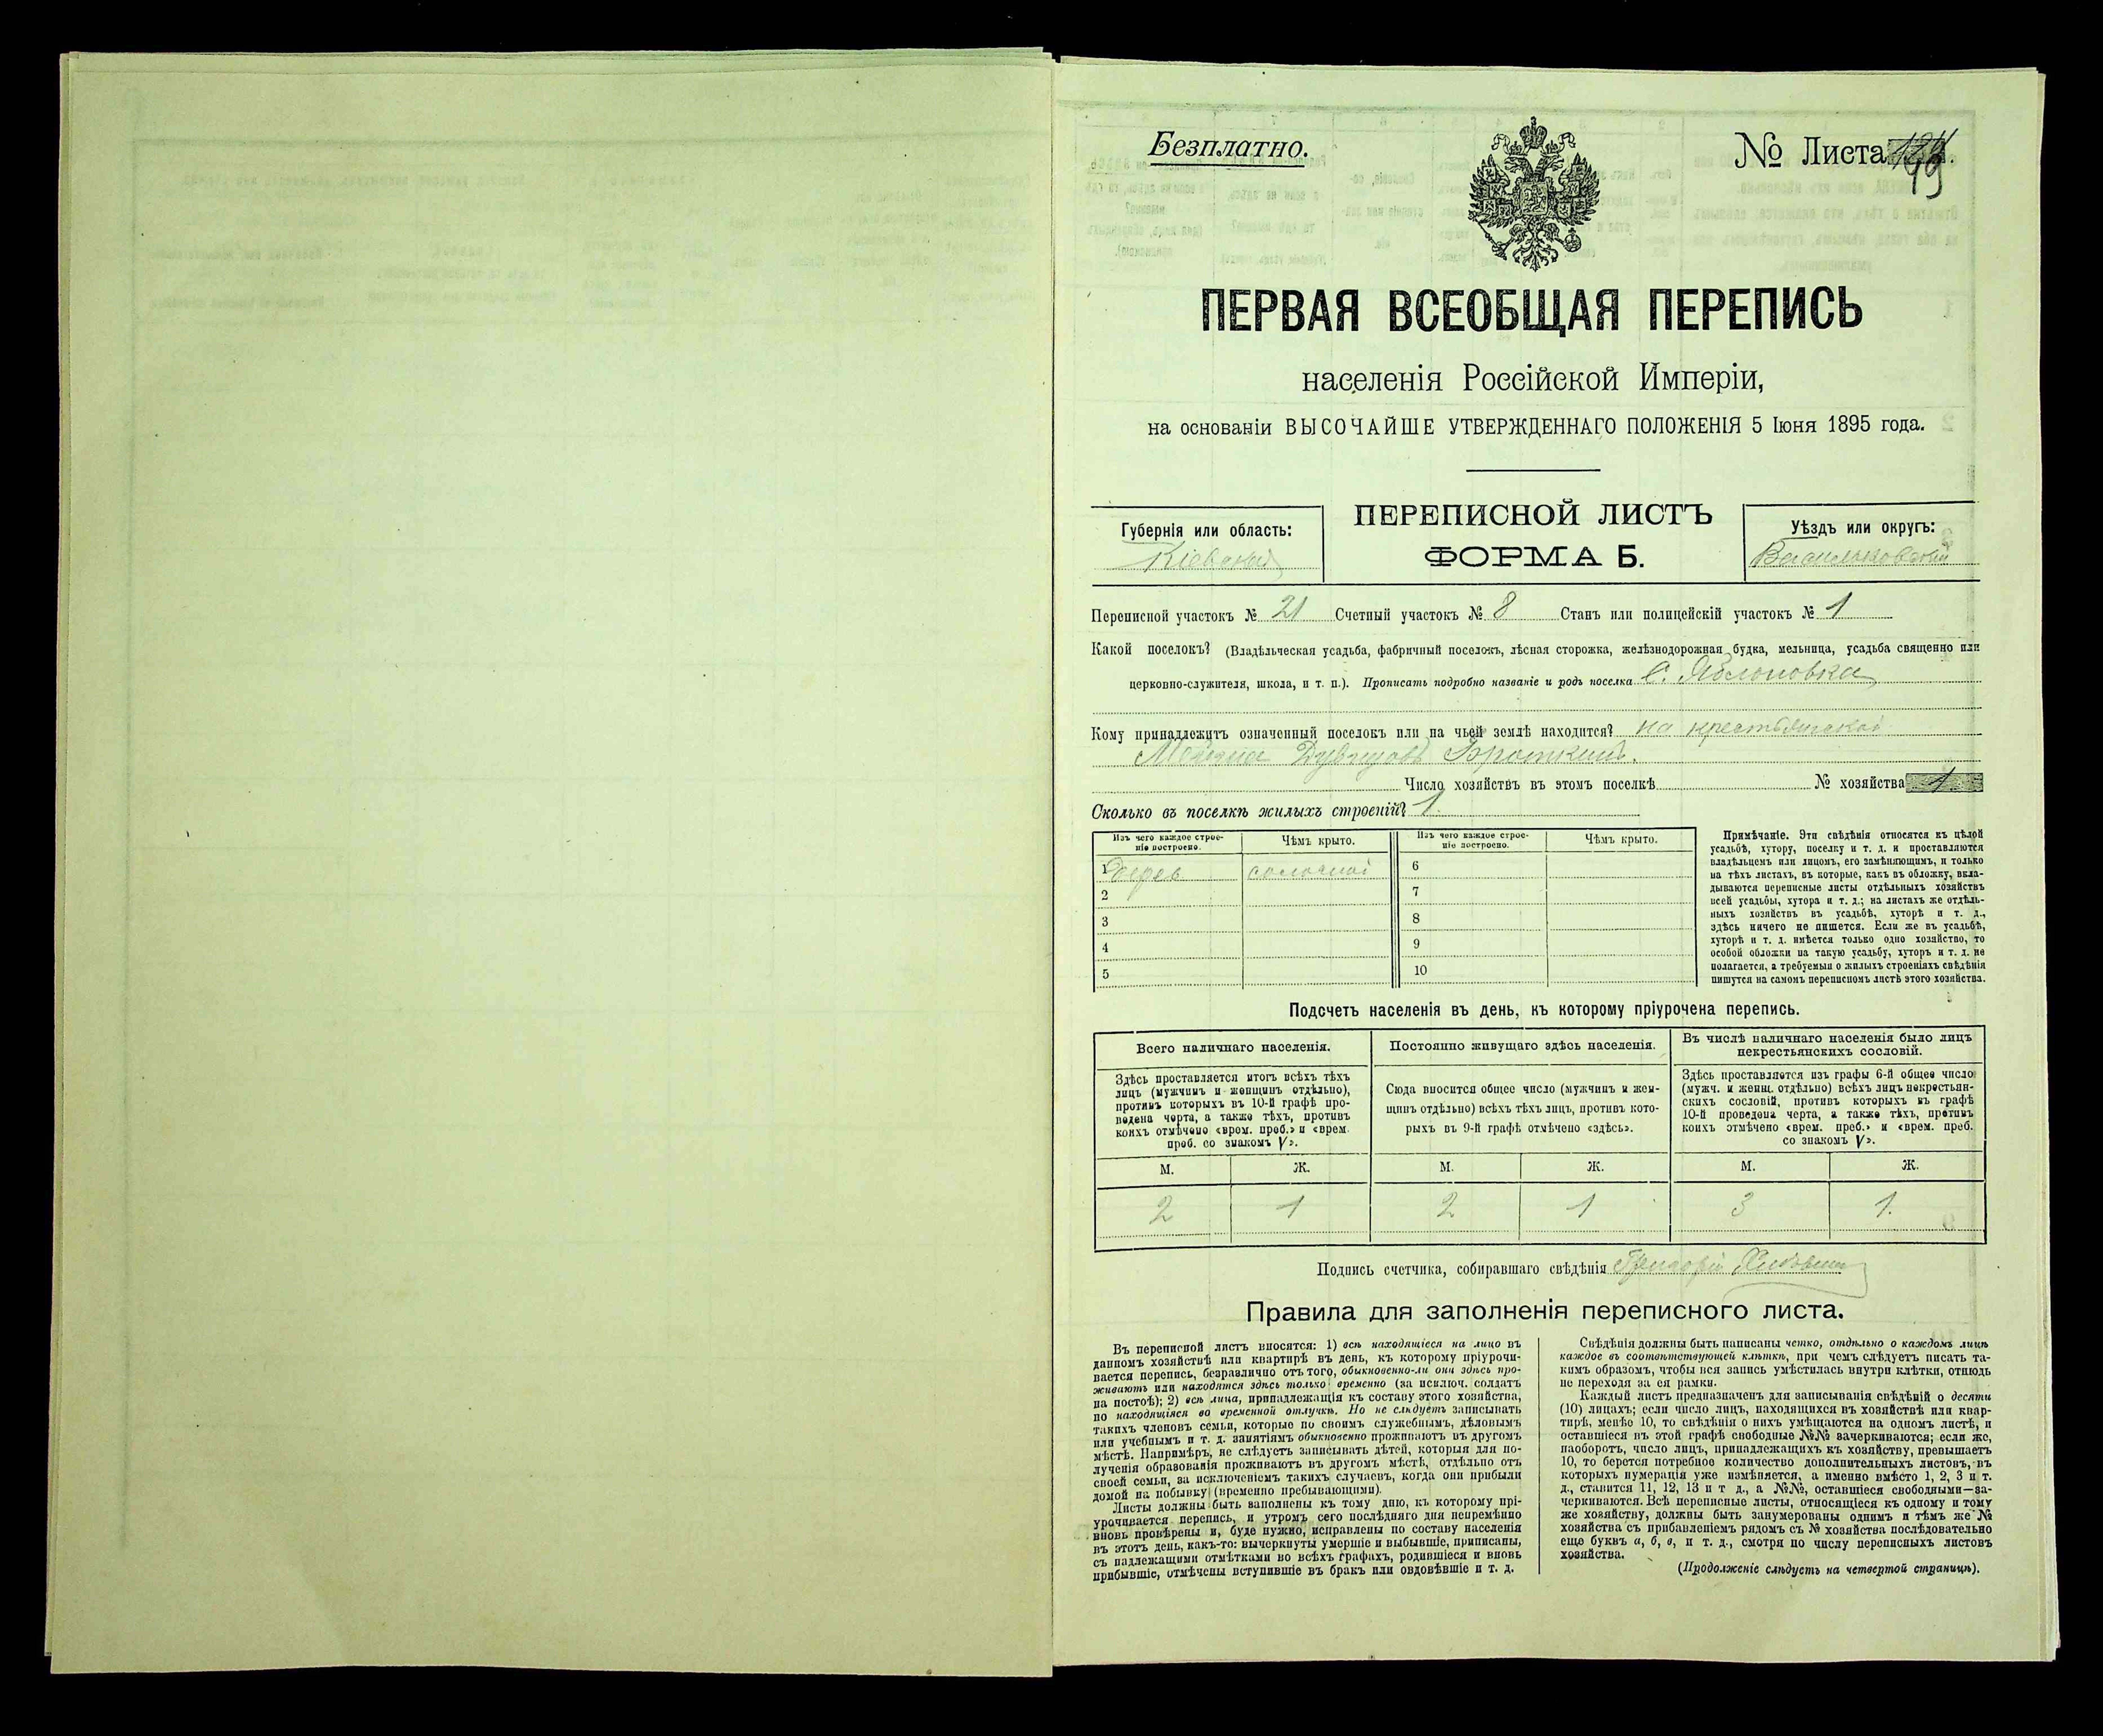 Безплатно.
№ Листа 49
ПЕРВАЯ ВСЕОБЩАЯ ПЕРЕПИСЬ
населенія Россійской Имперіи,
на основаніи ВЫСОЧАЙШЕ УТВЕРЖДЕННАГО ПОЛОЖЕНІЯ 5 Іюня 1895 года.
Губернія или область:
Кіевская
ПЕРЕПИСНОЙ ЛИСТЪ
ФОРМА Б.
Уѣздъ или округъ:
Васильковскій
Переписной участокъ № 21 Счетный участокъ № 8 Станъ или полицейскій участокъ № 1
Какой поселокъ? (Владѣльческая усадьба, фабричный поселокъ, лѣсная сторожка, желѣзнодорожная будка, мельница, усадьба священно или
церковно-служителя, школа, и т. п.). Прописать подробно названіе и родъ поселка с. Яблоновка
Кому принадлежитъ означенный поселокъ или на чьей землѣ находится? на крестьянской
Число хозяйствъ въ этомъ поселкѣ № хозяйства 1
Сколько въ поселкѣ жилыхъ строеній? 1.
Изъ чего каждое строе-
ніе построено.
Чѣмъ крыто.
Изъ чего каждое строе-
ніе построено.
Чѣмъ крыто.
1 дерев соломой 6
2 7
3 8
4 9
5 10
Примѣчаніе. Эти свѣдѣнія относятся къ цѣлой
усадьбѣ, хутору, поселку и т. д. и проставляются
владѣльцемъ или лицомъ, его замѣняющимъ, и только
на тѣхъ листахъ, въ которые, какъ въ обложку, вкла-
дываются переписные листы отдѣльныхъ хозяйствъ
всей усадьбы, хутора и т. д.; на листахъ же отдѣль-
ныхъ хозяйствъ въ усадьбѣ, хуторѣ и т. д.,
здѣсь ничего не пишется. Если же въ усадьбѣ,
хуторѣ и т. д. имѣется только одно хозяйство, то
особой обложки на такую усадьбу, хуторъ и т. д. не
полагается, а требуемыя о жилыхъ строеніяхъ свѣдѣнія
пишутся на самомъ переписномъ листѣ этого хозяйства.
Подсчетъ населенія въ день, къ которому пріурочена перепись.
Всего наличнаго населенія.
Здѣсь проставляется итогъ всѣхъ тѣхъ
лицъ (мужчинъ и женщинъ отдѣльно),
противъ которыхъ въ 10-й графѣ про-
ведена черта, а также тѣхъ, противъ
коихъ отмѣчено «врем. преб.» и «врем.
преб. со знакомъ V».
Постоянно живущаго здѣсь населенія.
Сюда вносится общее число (мужчинъ и жен-
щинъ отдѣльно) всѣхъ тѣхъ лицъ, противъ кото-
рыхъ въ 9-й графѣ отмѣчено «здѣсь».
Въ числѣ наличнаго населенія было лицъ
некрестьянскихъ сословій.
Здѣсь проставляется изъ графы 6-й общее число
(мужч. и женщ. отдѣльно) всѣхъ лицъ некрестьян-
скихъ сословій, противъ которыхъ въ графѣ
10-й проведена черта, а также тѣхъ, противъ
коихъ отмѣчено «врем. преб.» и «врем. преб.
со знакомъ V».
М. Ж. М. Ж. М. Ж.
2 1 2 1 3 1.
Подпись счетчика, собиравшаго свѣдѣнія Григорій
Правила для заполненія переписного листа.
Въ переписной листъ вносятся: 1) всѣ находящіеся на лицо въ
данномъ хозяйствѣ или квартирѣ въ день, къ которому пріурочи-
вается перепись, безразлично отъ того, обыкновенно-ли они здѣсь про-
живаютъ или находятся здѣсь только временно (за исключ. солдатъ
на постоѣ); 2) всѣ лица, принадлежащія къ составу этого хозяйства,
но находящіяся во временной отлучкѣ. Но не слѣдуетъ записывать
такихъ членовъ семьи, которые по своимъ служебнымъ, дѣловымъ
или учебнымъ и т. д. занятіямъ обыкновенно проживаютъ въ другомъ
мѣстѣ. Напримѣръ, не слѣдуетъ записывать дѣтей, которыя для по-
лученія образованія проживаютъ въ другомъ мѣстѣ, отдѣльно отъ
своей семьи, за исключеніемъ такихъ случаевъ, когда они прибыли
домой на побывку (временно пребывающими).
Листы должны быть заполнены къ тому дню, къ которому прі-
урочивается перепись, и утромъ сего послѣдняго дня непремѣнно
вновь провѣрены и, буде нужно, исправлены по составу населенія
въ этотъ день, какъ-то: вычеркнуты умершіе и выбывшіе, приписаны,
съ надлежащими отмѣтками во всѣхъ графахъ, родившіеся и вновь
прибывшіе, отмѣчены вступившіе въ бракъ или овдовѣвшіе и т. д.
Свѣдѣнія должны быть написаны четко, отдѣльно о каждомъ лицѣ
каждое въ соотвѣтствующей клѣткѣ, при чемъ слѣдуетъ писать та-
кимъ образомъ, чтобы вся запись умѣстилась внутри клѣтки, отнюдь
не переходя за ея рамки.
Каждый листъ предназначенъ для записыванія свѣдѣній о десяти
(10) лицахъ; если число лицъ, находящихся въ хозяйствѣ или квар-
тирѣ, менѣе 10, то свѣдѣнія о нихъ умѣщаются на одномъ листѣ, и
оставшіеся въ этой графѣ свободные №№ зачеркиваются; если же,
наоборотъ, число лицъ, принадлежащихъ къ хозяйству, превышаетъ
10, то берется потребное количество дополнительныхъ листовъ, въ
которыхъ нумерація уже измѣняется, а именно вмѣсто 1, 2, 3 и т.
д., ставится 11, 12, 13 и т д., а №№, оставшіеся свободными—за-
черкиваются. Всѣ переписные листы, относящіеся къ одному и тому
же хозяйству, должны быть занумерованы однимъ и тѣмъ же №
хозяйства съ прибавленіемъ рядомъ съ № хозяйства послѣдовательно
еще буквъ а, б, в, и т. д., смотря по числу переписныхъ листовъ
хозяйства.
(Продолженіе слѣдуетъ на четвертой страницѣ).